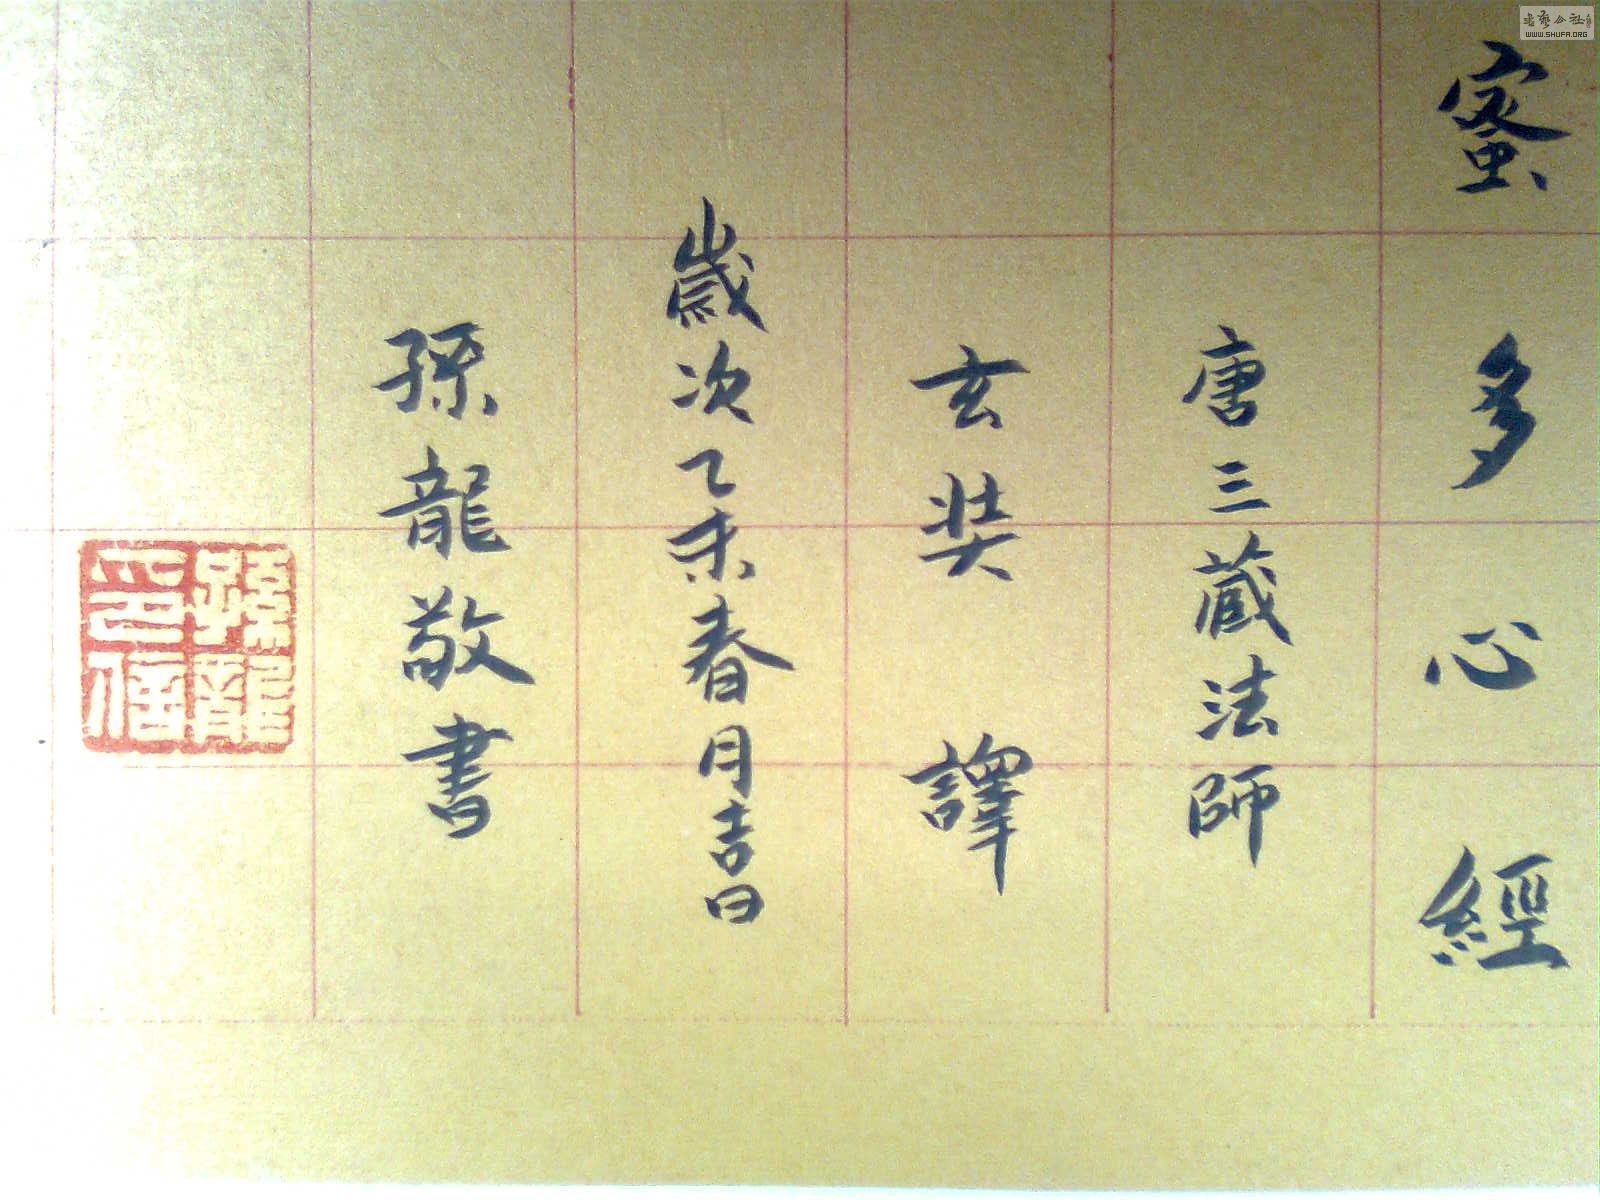 蜜多心經
唐三藏法師
玄奘譯
歲次乙未春月吉日
孫龍敬書
孫龍
印信
書藝公社
WWW.SHUFA.ORG